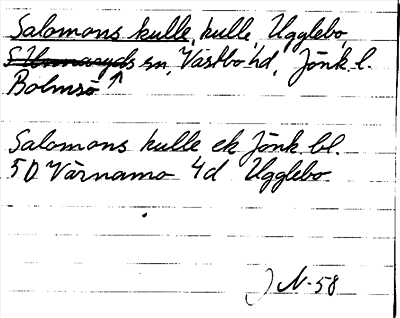 Salomons kulle, kulle Ugglebo,
S Unnaryds sn, Västbo hd, Jönk. l.
Bolmsö ↑
Salomons kulle ek Jönk. bl.
5D Värnamo 4d Ugglebo
J N-58